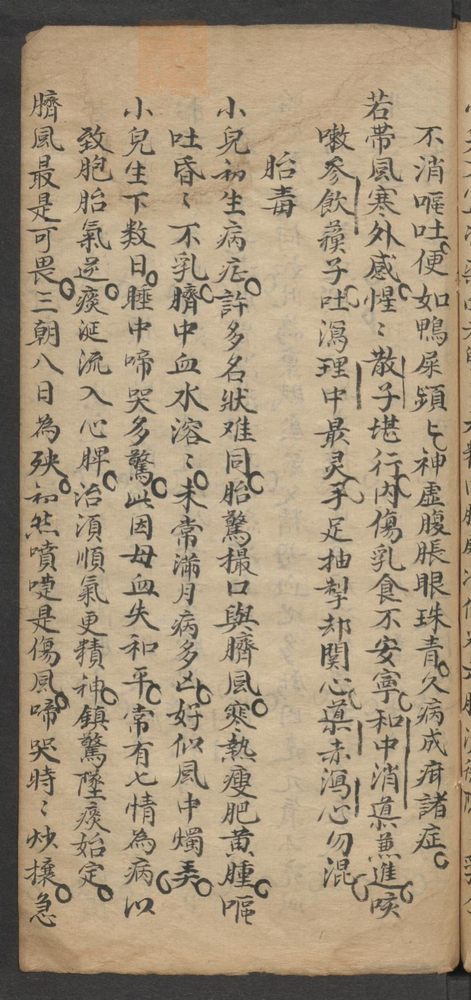 不消嘔吐便如鴨屎頻頻神虛腹脹眼珠青久病成疳諸症
若帶風寒外感惺〻散子堪行內傷乳食不安寧和中消導兼進咳
嗽參飲蘓子吐瀉理中最灵手足抽掣却関心導赤瀉心勿混
胎毒
小兒初生病症許多名狀难同胎驚撮口與臍風寒熱瘦肥黄腫嘔
吐昏〻不乳臍中血水溶〻未常滿月病多凶好似風中燭弄
小兒生下数日睡中啼哭多驚此因母血失和平常有七情為病以
致胞胎氣逆痰涎流入心脾治湏順氣更積神鎮驚墜痰始定
臍風最是可畏三朝八日為殃初然噴嚏是傷風啼哭時〻炒攘急